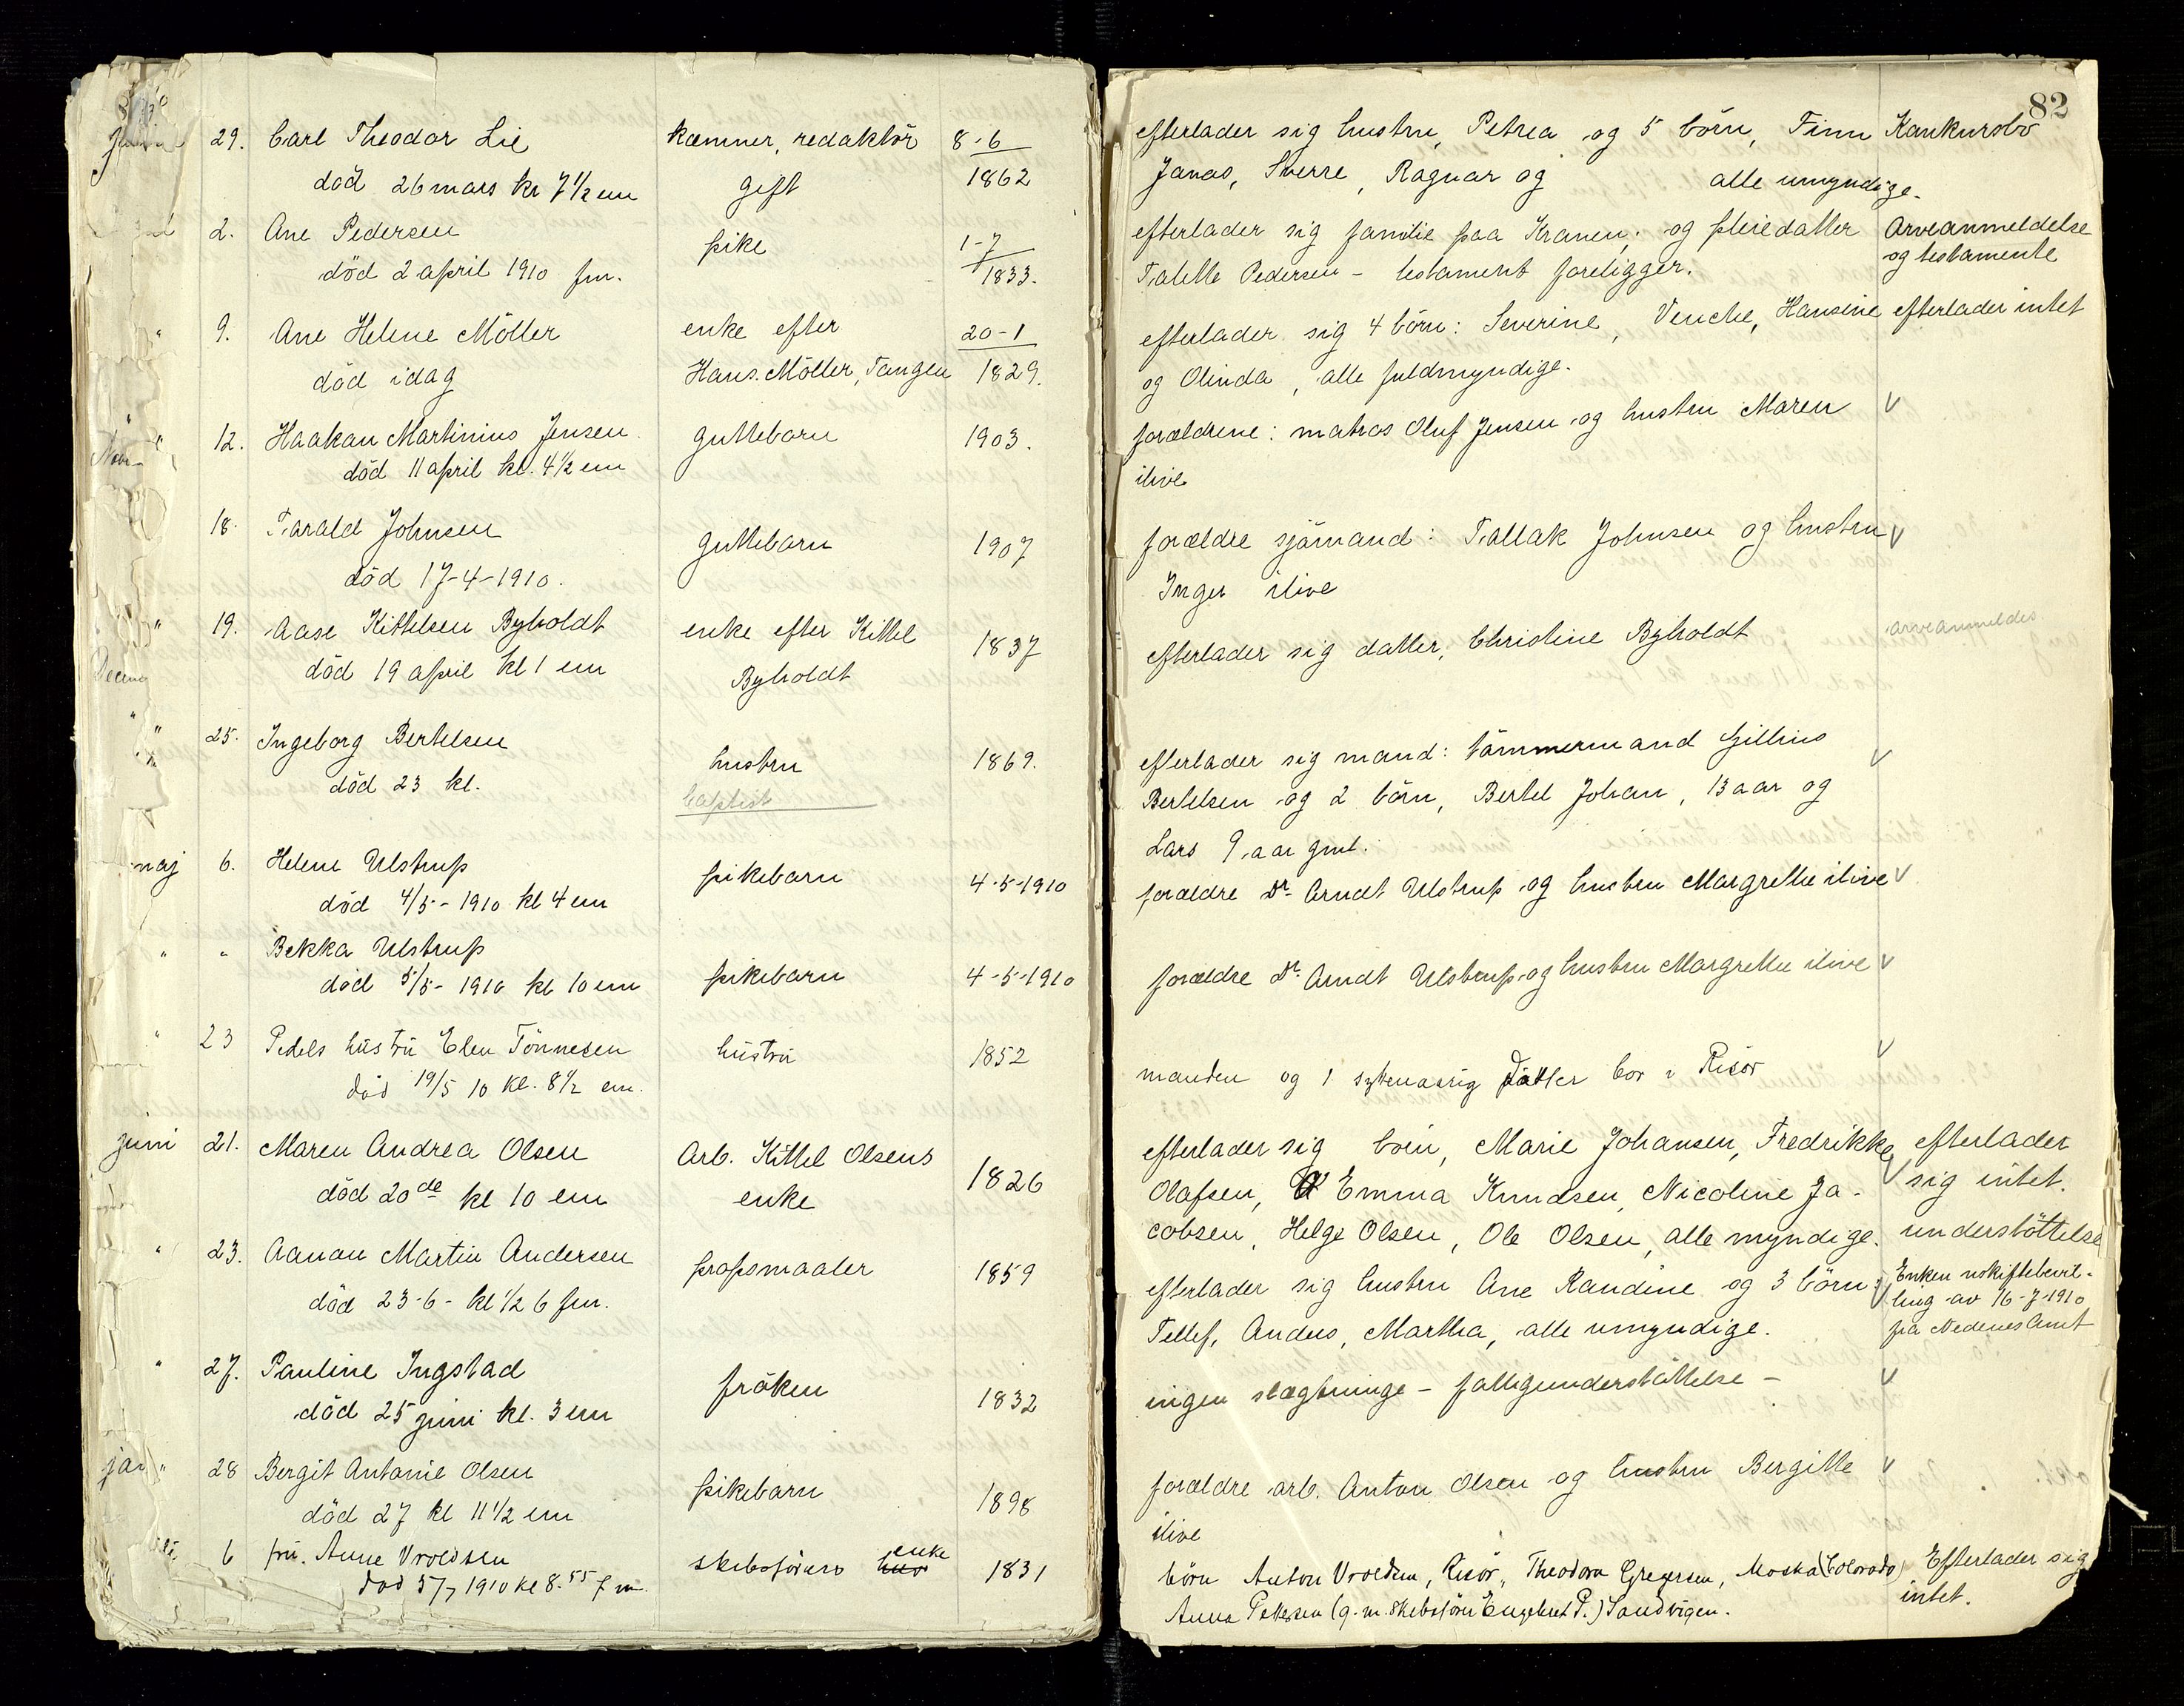 82
29. Carl Theodor Lie kæmner, redaktör 8-6 efterlader sig hustru, Petrea og 5 börn, Finn Konkursbo
död 26 mars kl 7 1/2 em gift 1862 Jonas, Sverre, Ragnar og alle umyndige.
2. Ane Pedersen pike 1-7 efterlader sig familie paa Kranen, og pleiedatter Arveanmeldelse
död 2 april 1910 fm. 1833. Talette Pedersen - testament foreligger. og testamente
" 9. Ane Helene Möller enke efter 20-1 efterlader sig 4 börn: Severine, Venche, Hansine efterlader intet
död idag Hans Möller, Tangen 1829. og Olinda, alle fuldmyndige.
" 12. Haakon Martinius Jensen guttebarn 1903. forældrene: matros Oluf Jensen og hustru Maren V
död 11 april kl. 4 1/2 em ilive
18. Tarald Johnsen guttebarn 1907 forældre sjömand: Tallak Johnsen og hustru V
död 17-4-1910. Inger ilive
" 19. Aase Kittelsen Byholdt enke efter Kittel 1837 efterlader sig datter, Christine Byholdt arveanmeldes
död 19 april kl 1 em Byholdt
" 25. Ingeborg Bertelsen hustru 1869. efterlader sig mand: tömmermand V
död 23 kl. baptist Bertelsen og 2 börn, Bertel Johan, 13 aar og
Lars 9 aar gml.
maj 6. Helene Ulstrup pikebarn 4-5-1910 forældre Dr. Arndt Ulstrup og hustru Margrethe ilive V
död 4/5-1910 kl 4 em
" " Bekka Ulstrup pikebarn 4-5-1910 forældre Dr. Arndt Ulstrup og hustru Margrethe ilive V
död 5/5-1910 kl 10 em
" 23 Pedels hustru Elen Tönnesen hustru 1852 manden og 1 syttenaarig datter bor i Risör V
död 19/5 10 kl. 8 1/2 em.
juni 21. Maren Andrea Olsen Arb. Kittel Olsens 1826 efterlader sig börn, Marie Johansen, Fredrikke efterlader
död 20de kl 10 em enke Olafsen, Emma Knudsen, Nicoline Ja- V sig intet.
cobsen, Helge Olsen, Ole Olsen, alle myndige. understöttelse
" 23. Aanon Martin Andersen propsmaaler 1859 efterlader sig hustru Ane Randine og 3 börn: V Enken uskiftebevil-
död 23-6- kl 1/2 6 fm. Tellef, Anders, Martha, alle umyndige. ling av 16-7-1910
fra Nedenes Amt
" 27. Pauline Ingstad fröken 1832 ingen slægtninge - fattigunderstöttelse - V
död 25 juni kl. 3 em
" 28 Bergit Antonie Olsen pikebarn 1898 forældre arb. Anton Olsen og hustru Bergitte V
död 27 kl 11 1/2 em ilive
6 fru. Anne Vroldsen skibsförers enke 1831 börn Anton Vroldsen, Risör, Theodora Gregersen, Moska (Colorado) Efterlader sig
död 5/7 1910 kl 8.55 fm. Anna Pettersen (g.m. skibsförer Engebret P.) Sandvigen. intet.